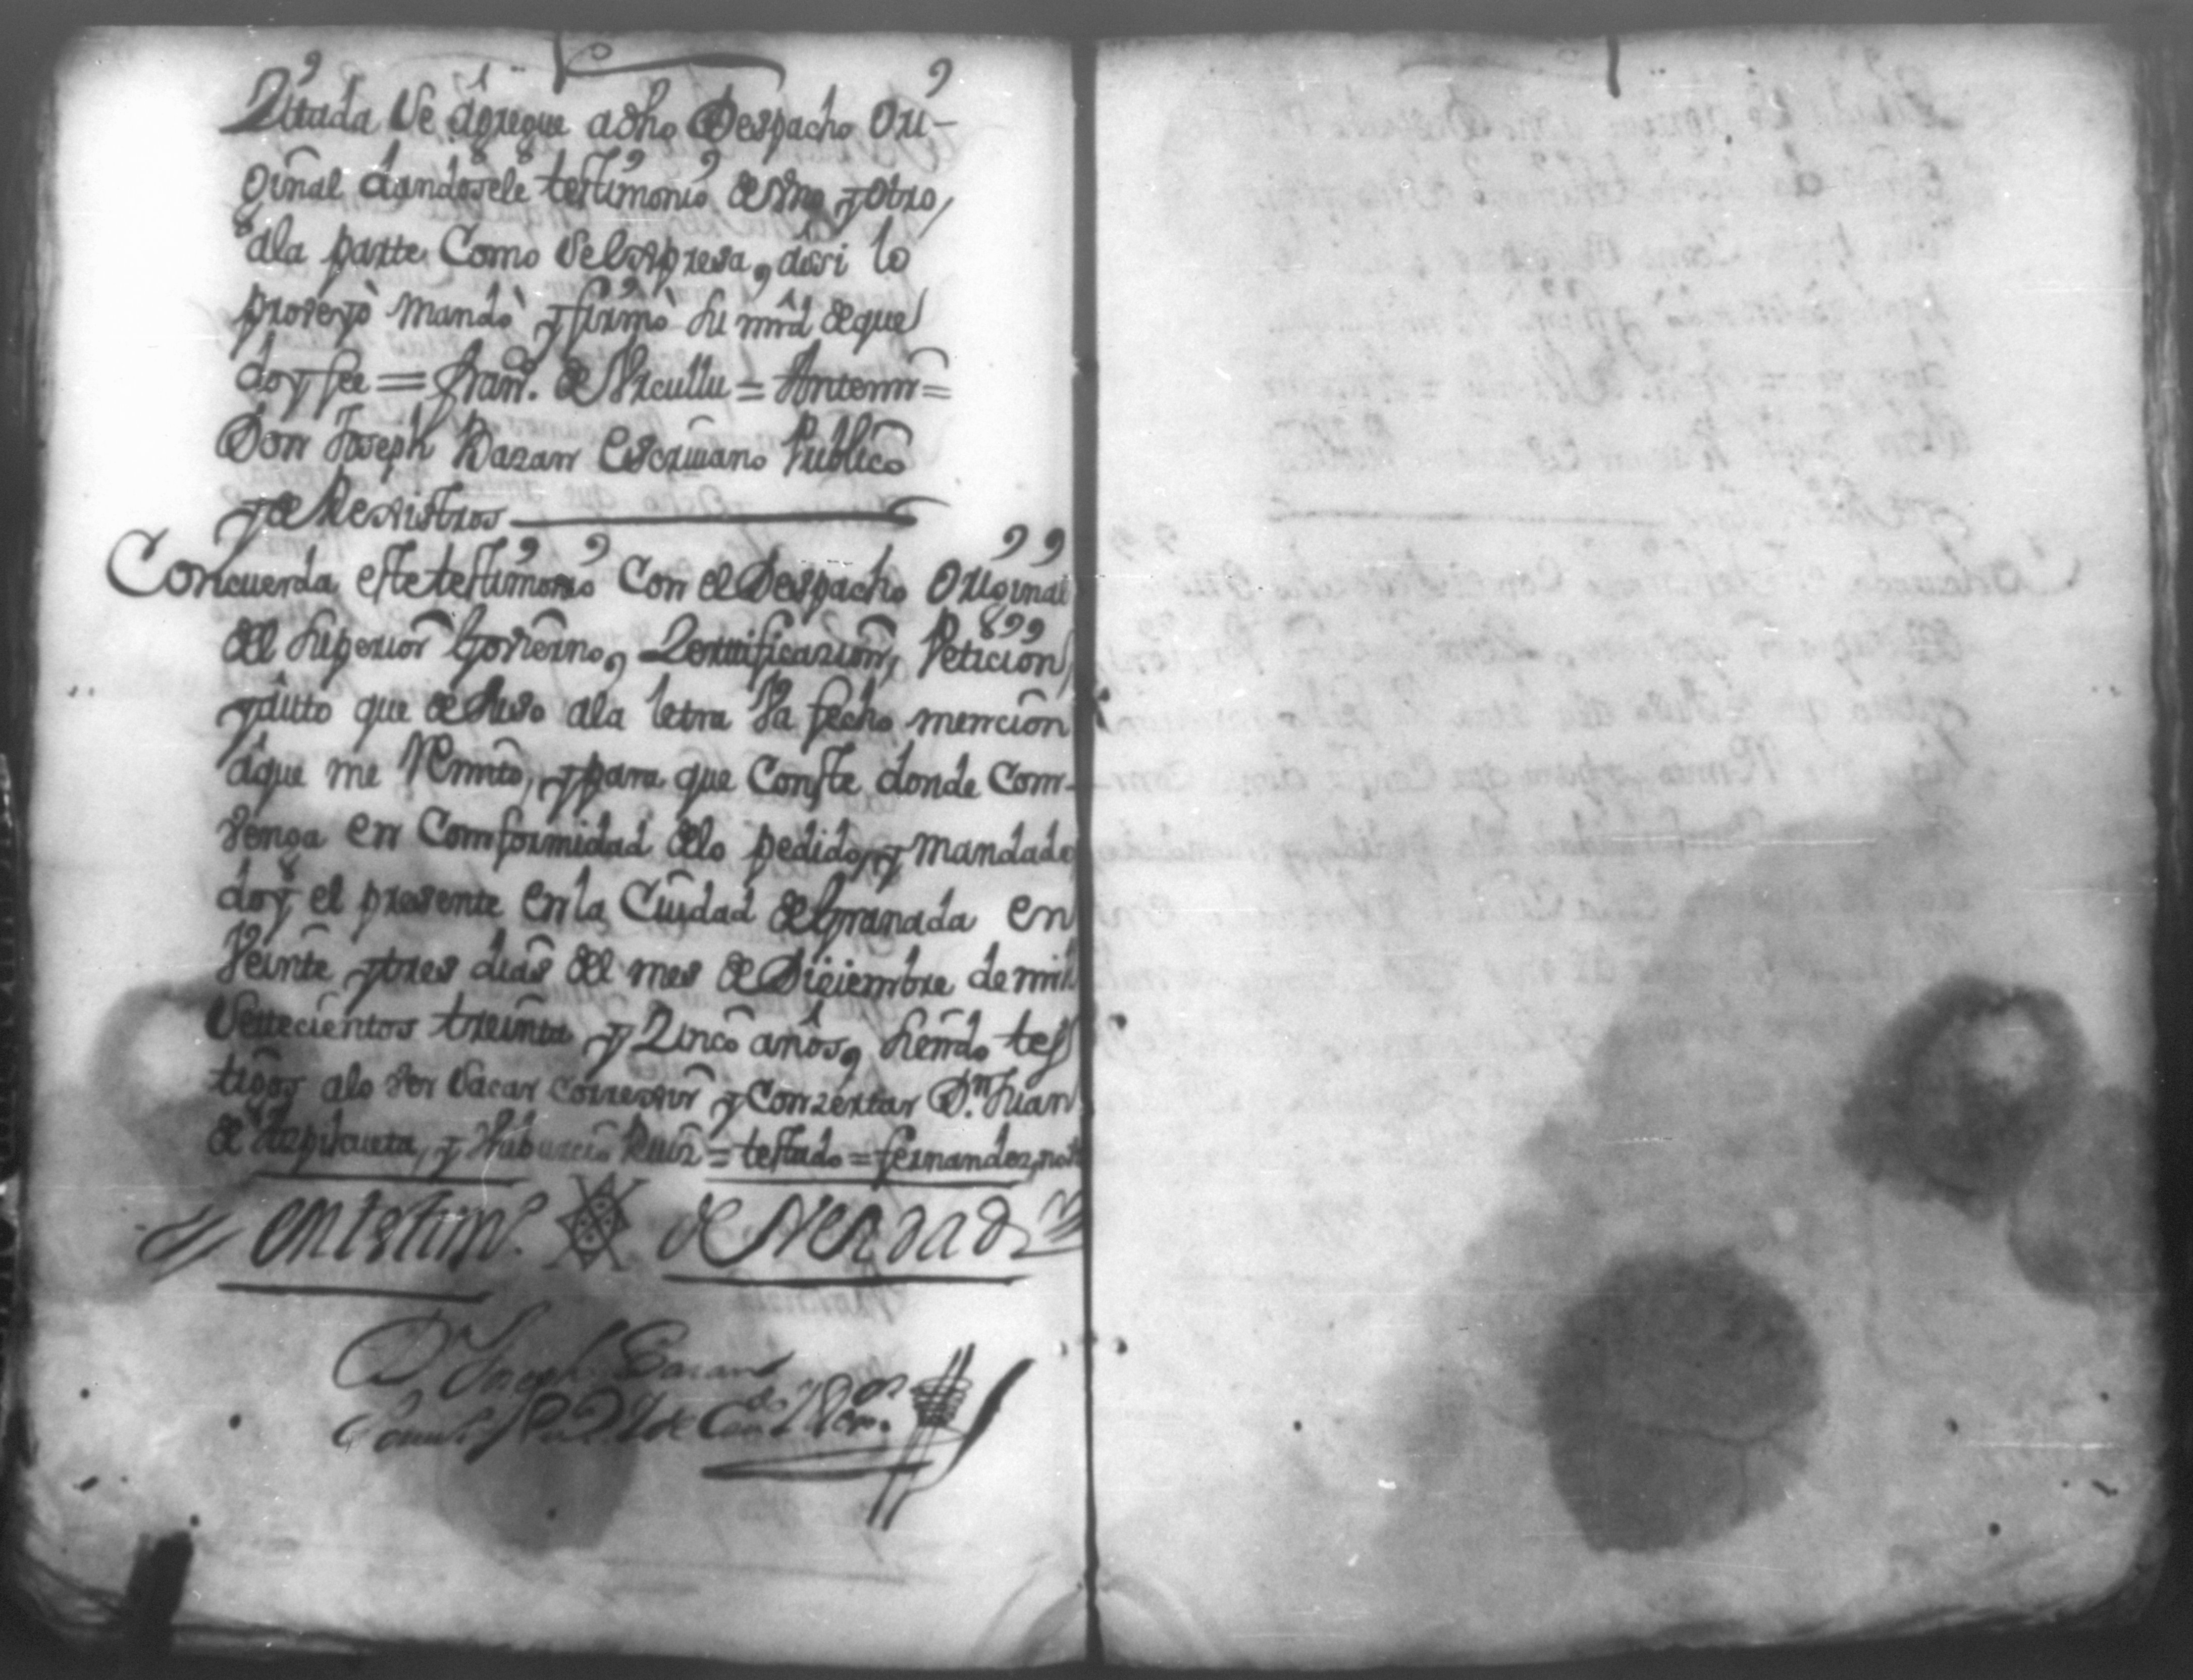 Zitada se agregue a dho Despacho Ori-
ginal dandosele testimonio de Uno y otro,
ala parte Como se expresa, assi lo
proveyò mandò y firmò su mrd de que
doy fee = Fran.co de Arcullu = Antemi =
Don Joseph Bazan Escrivano Publico
y de Rexistros
Concuerda este testimonio Con el Despacho Original
del superior Govierno, Zertificazion, Peticion,
y auto que de suso ala letra Va fecho mencion
aque me Remito, y para que Conste donde Com-
benga en Comformidad delo pedido, y mandado
doy el presente en la Ciudad de Granada en
Veinte y tres dias del mes de Diziembre de mil
settecientos treinta y Zinco años, siendo tes
tigos alo ver sacar correxir y Conzertar D.n Juan
de Aspitueta, y Ruiz = testado = fernandez, no
en testim.o de Verdad
D.n Joseph Bazan